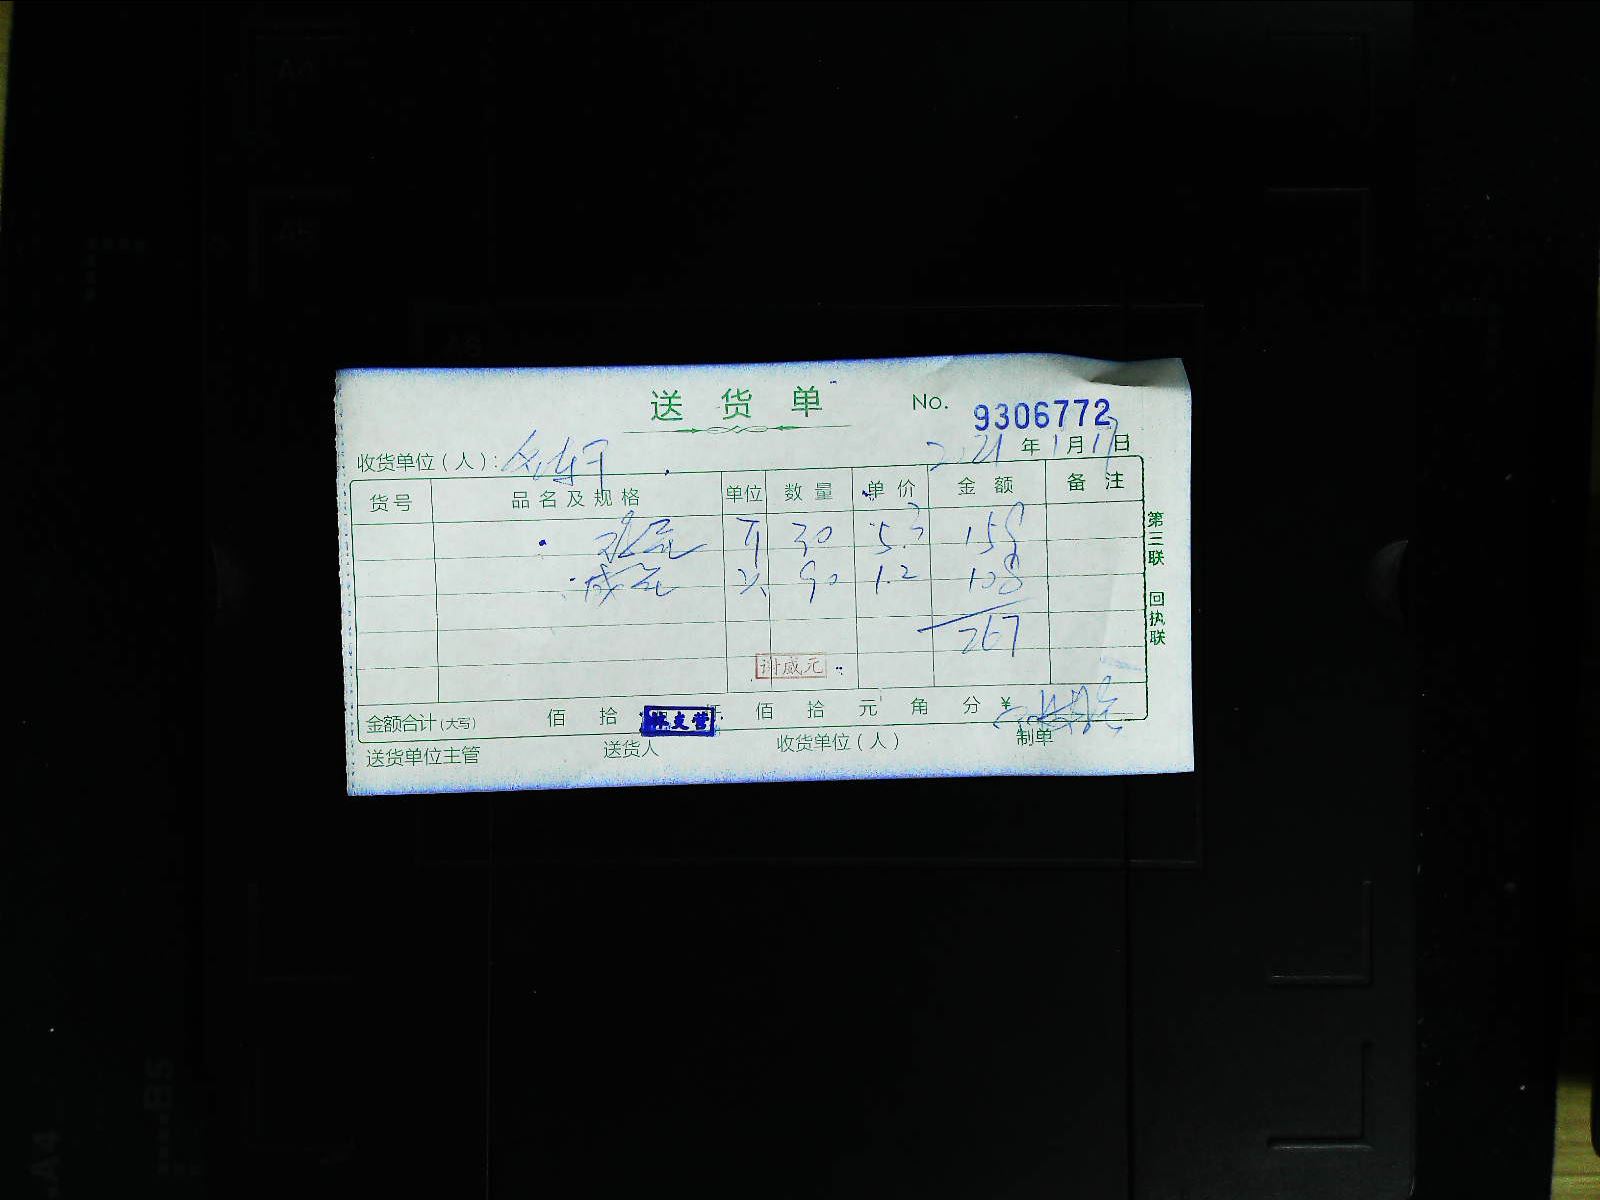 送货单 No. 9306772
收货单位（人）： 2021年1月17日
货号 品名及规格 单位 数量 单价 金额 备注
30 5.3 159
90 1.2 108
267
谢威元
金额合计（大写） 佰 拾 仟 佰 拾 元 角 分 ¥
林支营
送货单位主管 送货人 收货单位（人） 制单
第三联 回执联
A4
A5
A6
B5
A4